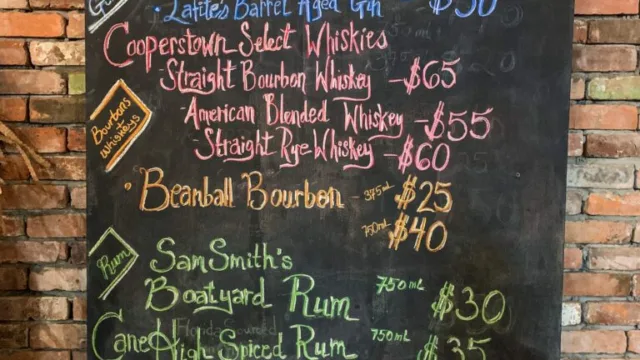 Lafite's Barrel Aged Gin $50
Cooperstown Select Whiskies
Straight Bourbon Whiskey - $65
Bourbons
Whiskeys
American Blended Whiskey - $55
Straight Rye Whiskey - $60
Beanball Bourbon - 375mL $25
750mL $40
Rum
Sam Smith's
Boatyard Rum 750mL $30
Cane High Spiced Rum 750mL $35